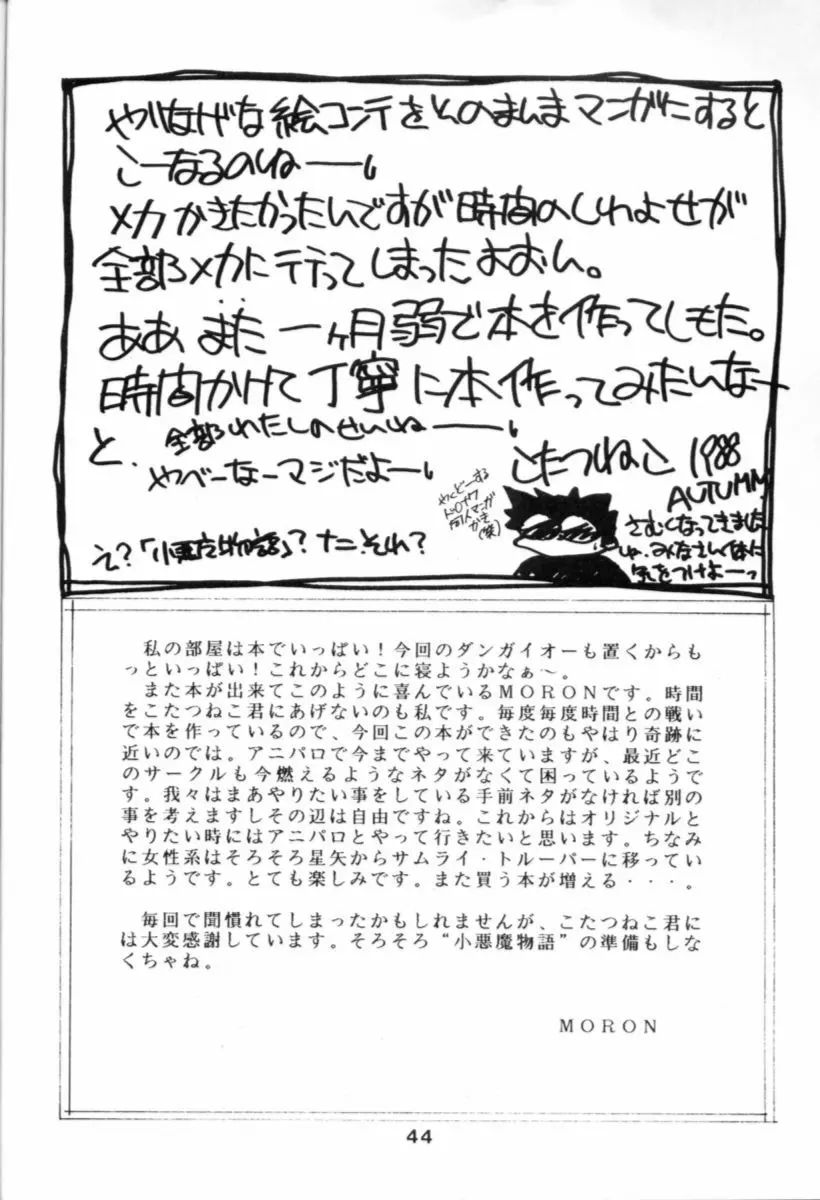 やりなげな絵コンテをそのまんまマンガにすると
こーなるのねー。
メカかきたかったんですが時間のしわよせが
全部メカに行ってしまったよおん。
ああ また 一ヶ月弱で本を作ってしもた。
時間かけて丁寧に本作ってみたいなー
と、全部わたしのせいねー。
やべーなーマジだよー。
こたつねこ 1988
AUTUMN
さむくなってきました
みなさん体に
気をつけよーっ
え?「小悪魔物語」?ナニそれ?
私の部屋は本でいっぱい!今回のダンガイオーも置くからも
っといっぱい!これからどこに寝ようかなぁ~。
また本が出来てこのように喜んでいるMORONです。時間
をこたつねこ君にあげないのも私です。毎度毎度時間との戦い
で本を作っているので、今回この本ができたのもやはり奇跡に
近いのでは。アニパロで今までやって来ていますが、最近どこ
のサークルも今燃えるようなネタがなくて困っているようで
す。我々はまあやりたい事をしている手前ネタがなければ別の
事を考えますしその辺は自由ですね。これからはオリジナルと
やりたい時にはアニパロとやって行きたいと思います。ちなみ
に女性系はそろそろ星矢からサムライ・トルーパーに移ってい
るようです。とても楽しみです。また買う本が増える・・・。
毎回で聞慣れてしまったかもしれませんが、こたつねこ君に
は大変感謝しています。そろそろ“小悪魔物語”の準備もしな
くちゃね。
MORON
44